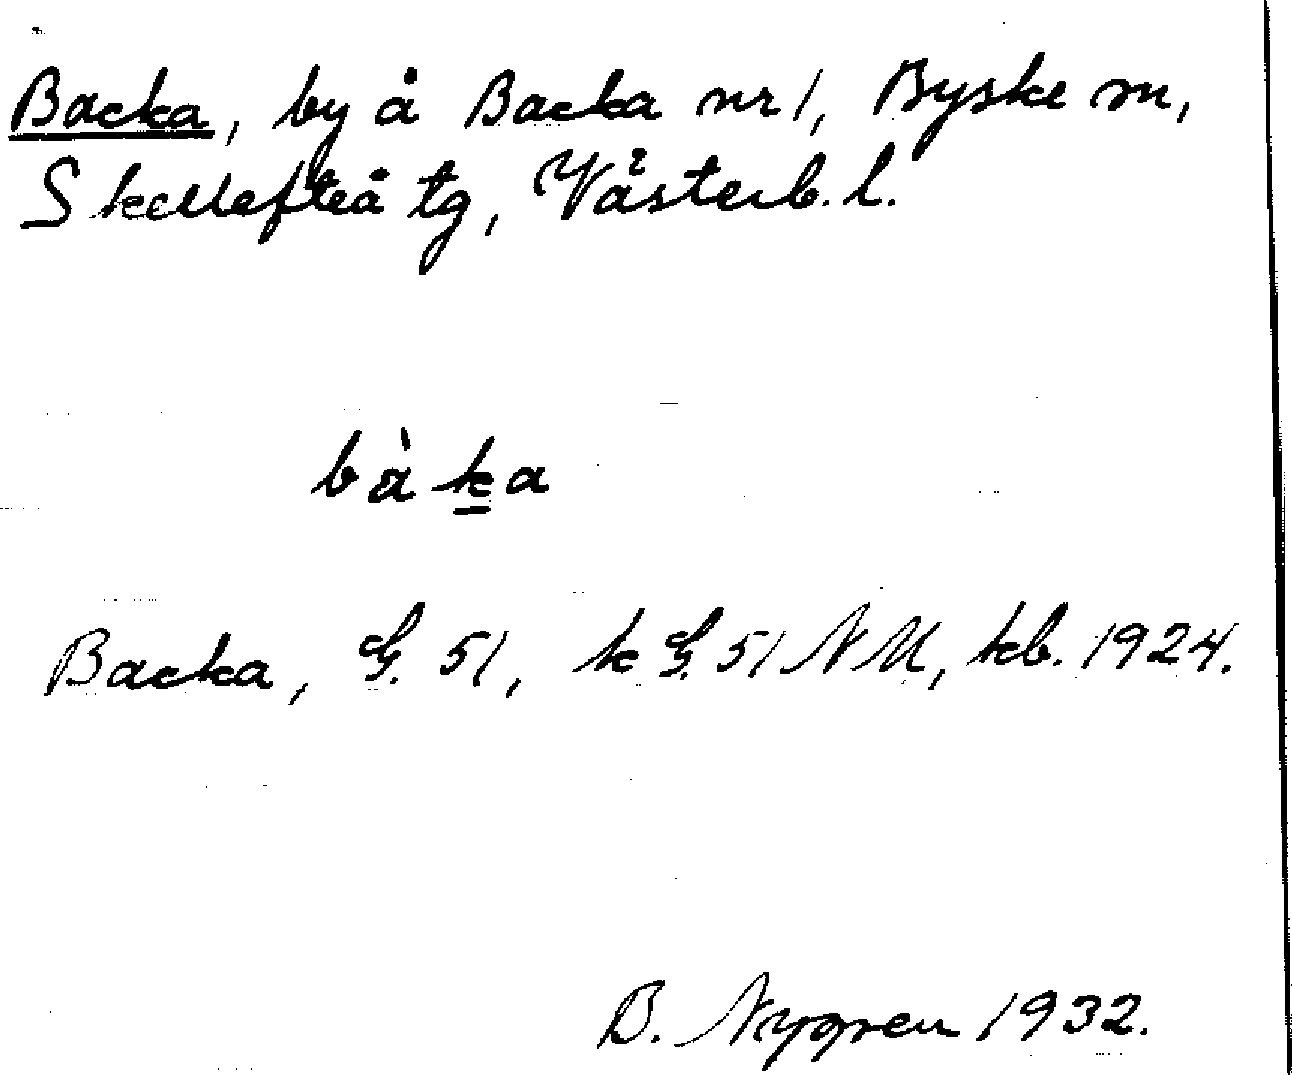 Backa, by å Backa nr 1, Byske sn,
Skellefteå tg, Västerb. l.
bàk̲a
Backa, G. 51, k G. 51 NM, kb. 1924.
B. Nygren 1932.